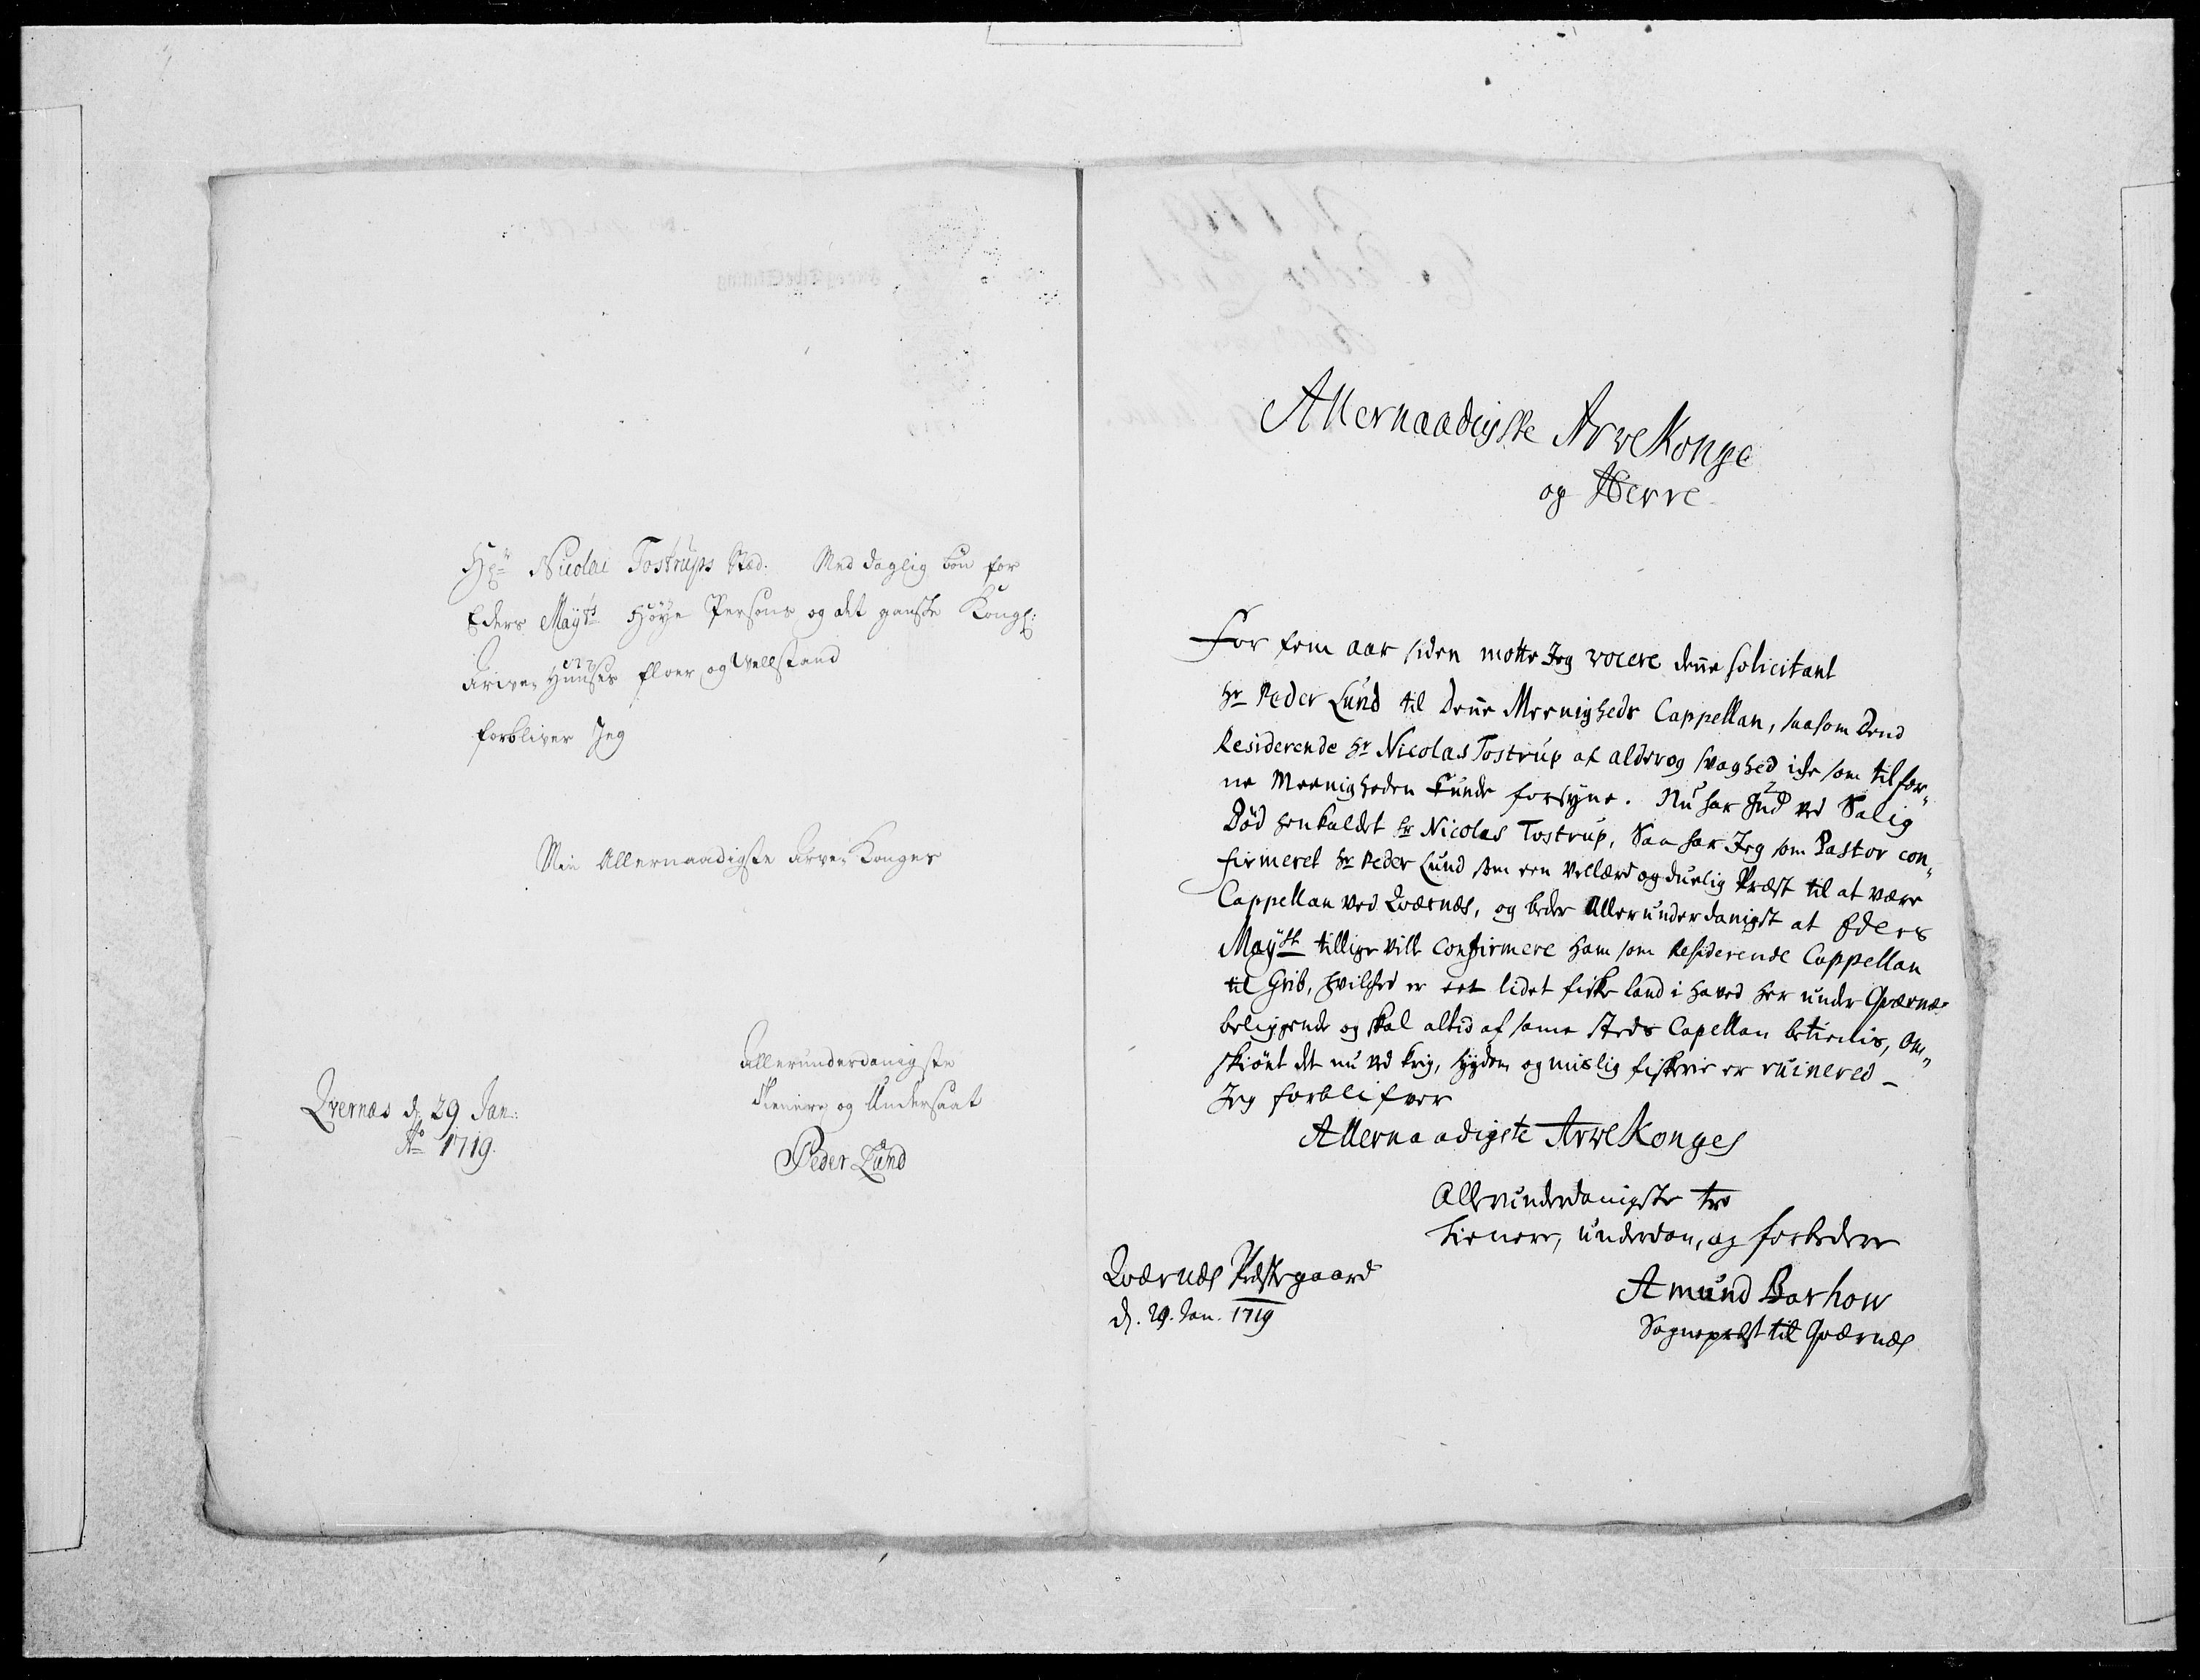 Hr: Nicolai Tostrups Sted. Med daglig bön for
Eders Maÿts Höÿe Persons og det gandske Kongl:
Arive Huuses floer og Vellstand
forbliver Jeg
Min Allernaadigste Arve Konges
Allerunderdanigste
tienere og Undersaat
Peder Lund
Qvernæs d. 29 Jan:
Ao 1719.
Allernaadigste ArveKonge
og Herre
For fem aar siden motte Jeg vocere denne solicitant
Hr Peder Lund til denne Meenigheds Cappellan, saasom dend
Residerende Hr Nicolas Tostrup af alder og svaghed iche som tilfor„
ne Meenigheden kunde forsyne. Nu har Gud ved Salig
Död henkaldet Hr Nicolas Tostrup, Saa har Jeg som Pastor con„
firmeret Hr Peder Lund som een Vellærd og duelig Præst til at være
Cappellan ved Qværnæs, og beder Allerunderdanigst at Eders
Maÿst tillige vill confirmere ham som Residerende Cappellan
til Grib, hvilched er eet lidet fiske land i haved her under Qværnæs
beliggende og skal altid af samme steds Capellan betienis, Om„
skiönt det nu ved krig, sygdom og mislig fiskerie er ruinered –
Jeg forblifver
Allernaadigste ArveKonges
Allerunderdanigste tro
tienere, underdan, og forbedere
Amund Barhow
Sognepræst til Qværnæs
Qværnæs Præstegaard
d. 29. Jan. 1719